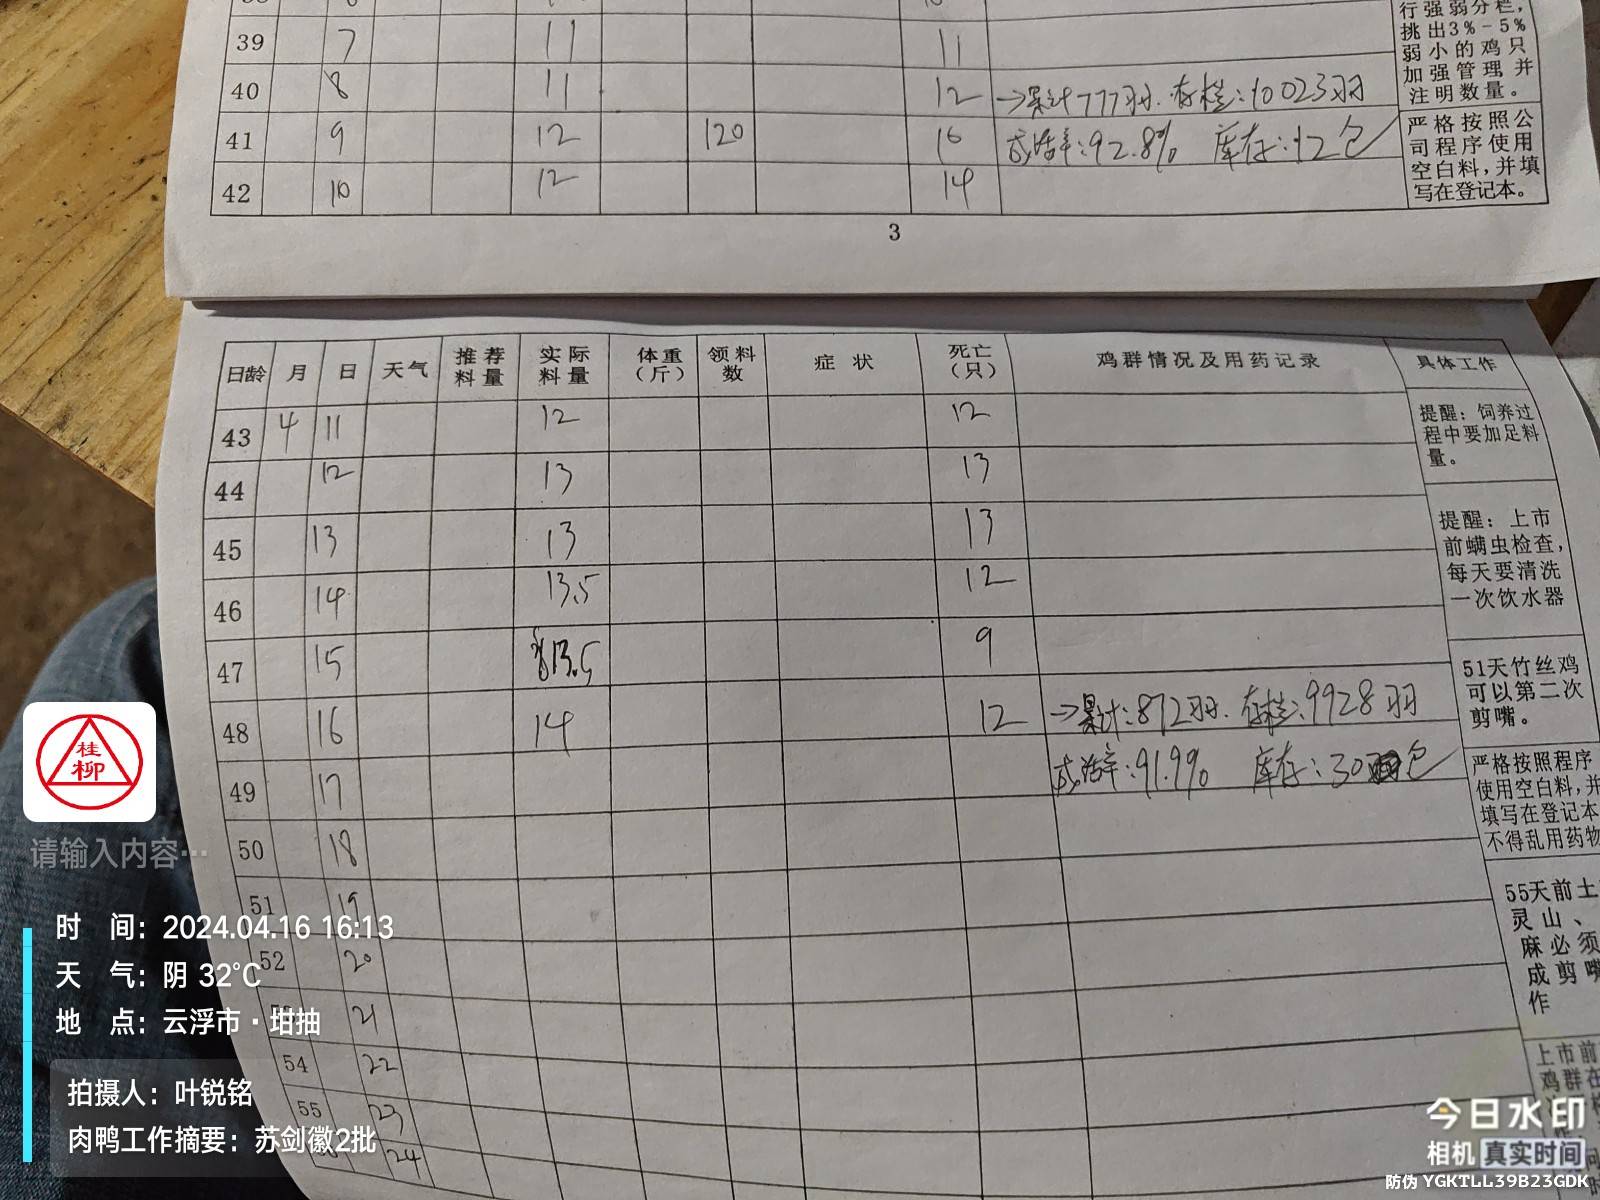 行强弱分栏，
39 7 11 11
挑出3%-5%
弱小的鸡只
加强管理并
注明数量。
40 8 11 12 →累计777羽. 存栏:10023羽
41 9 12 120 16 成活率:92.8% 库存:12包
严格按照公
司程序使用
空白料，并填
写在登记本。
42 10 12 14
3
日龄 月 日 天气 推荐料量 实际料量 体重（斤） 领料数 症状 死亡（只） 鸡群情况及用药记录 具体工作
43 4 11 12 12
提醒：饲养过
程中要加足料
量。
44 12 13 13
45 13 13 13
提醒：上市
前螨虫检查，
每天要清洗
一次饮水器
46 14 13.5 12
47 15 13.5 9
51天竹丝鸡
可以第二次
剪嘴。
48 16 14 12 →累计:872羽. 存栏:9928羽
49 17 成活率:91.9% 库存:30包
严格按照程序
使用空白料，并
填写在登记本
不得乱用药物
50 18
51 19
55天前土
灵山、
麻必须
成剪嘴
作
52 20
21
54 22
55 23
24
上市前
鸡群在
桂
柳
请输入内容…
时 间：2024.04.16 16:13
天 气：阴 32℃
地 点：云浮市·坩抽
拍摄人：叶锐铭
肉鸭工作摘要：苏剑徽2批
今日水印
相机 真实时间
防伪 YGKTLL39B23GDK